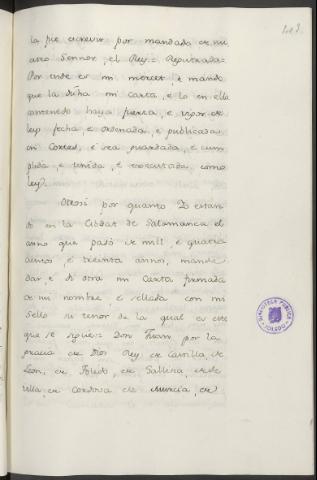 la fice escrevir por mandado de mi
arco Sennor, el Rey = Registrada =
Por ende es mi merced é mando
que la dicha mi carta, e lo en ella
contenido haya fuerza, e vigor de
ley fecha e ordenada, e publicada
en Cortes, é sea guardada, e cum
plida, e tenida, e executada, como
ley.
Otrosi por quanto Io estan
do en la Cibdat de Salamanca el
anno que pasó de mill, e quatro
cientos, e treinta annos, mandé
dar, é di otra mi Carta firmada
de mi nombre é sellada con mi
Sello su tenor de la qual es este
que se sigue: Don Juan por la
gracia de Dios Rey de Castilla, de
Leon, de Toledo, de Gallicia, de Se
villa, de Cordova de Murcia, de
BIBLIOTECA PUBLICA
TOLEDO